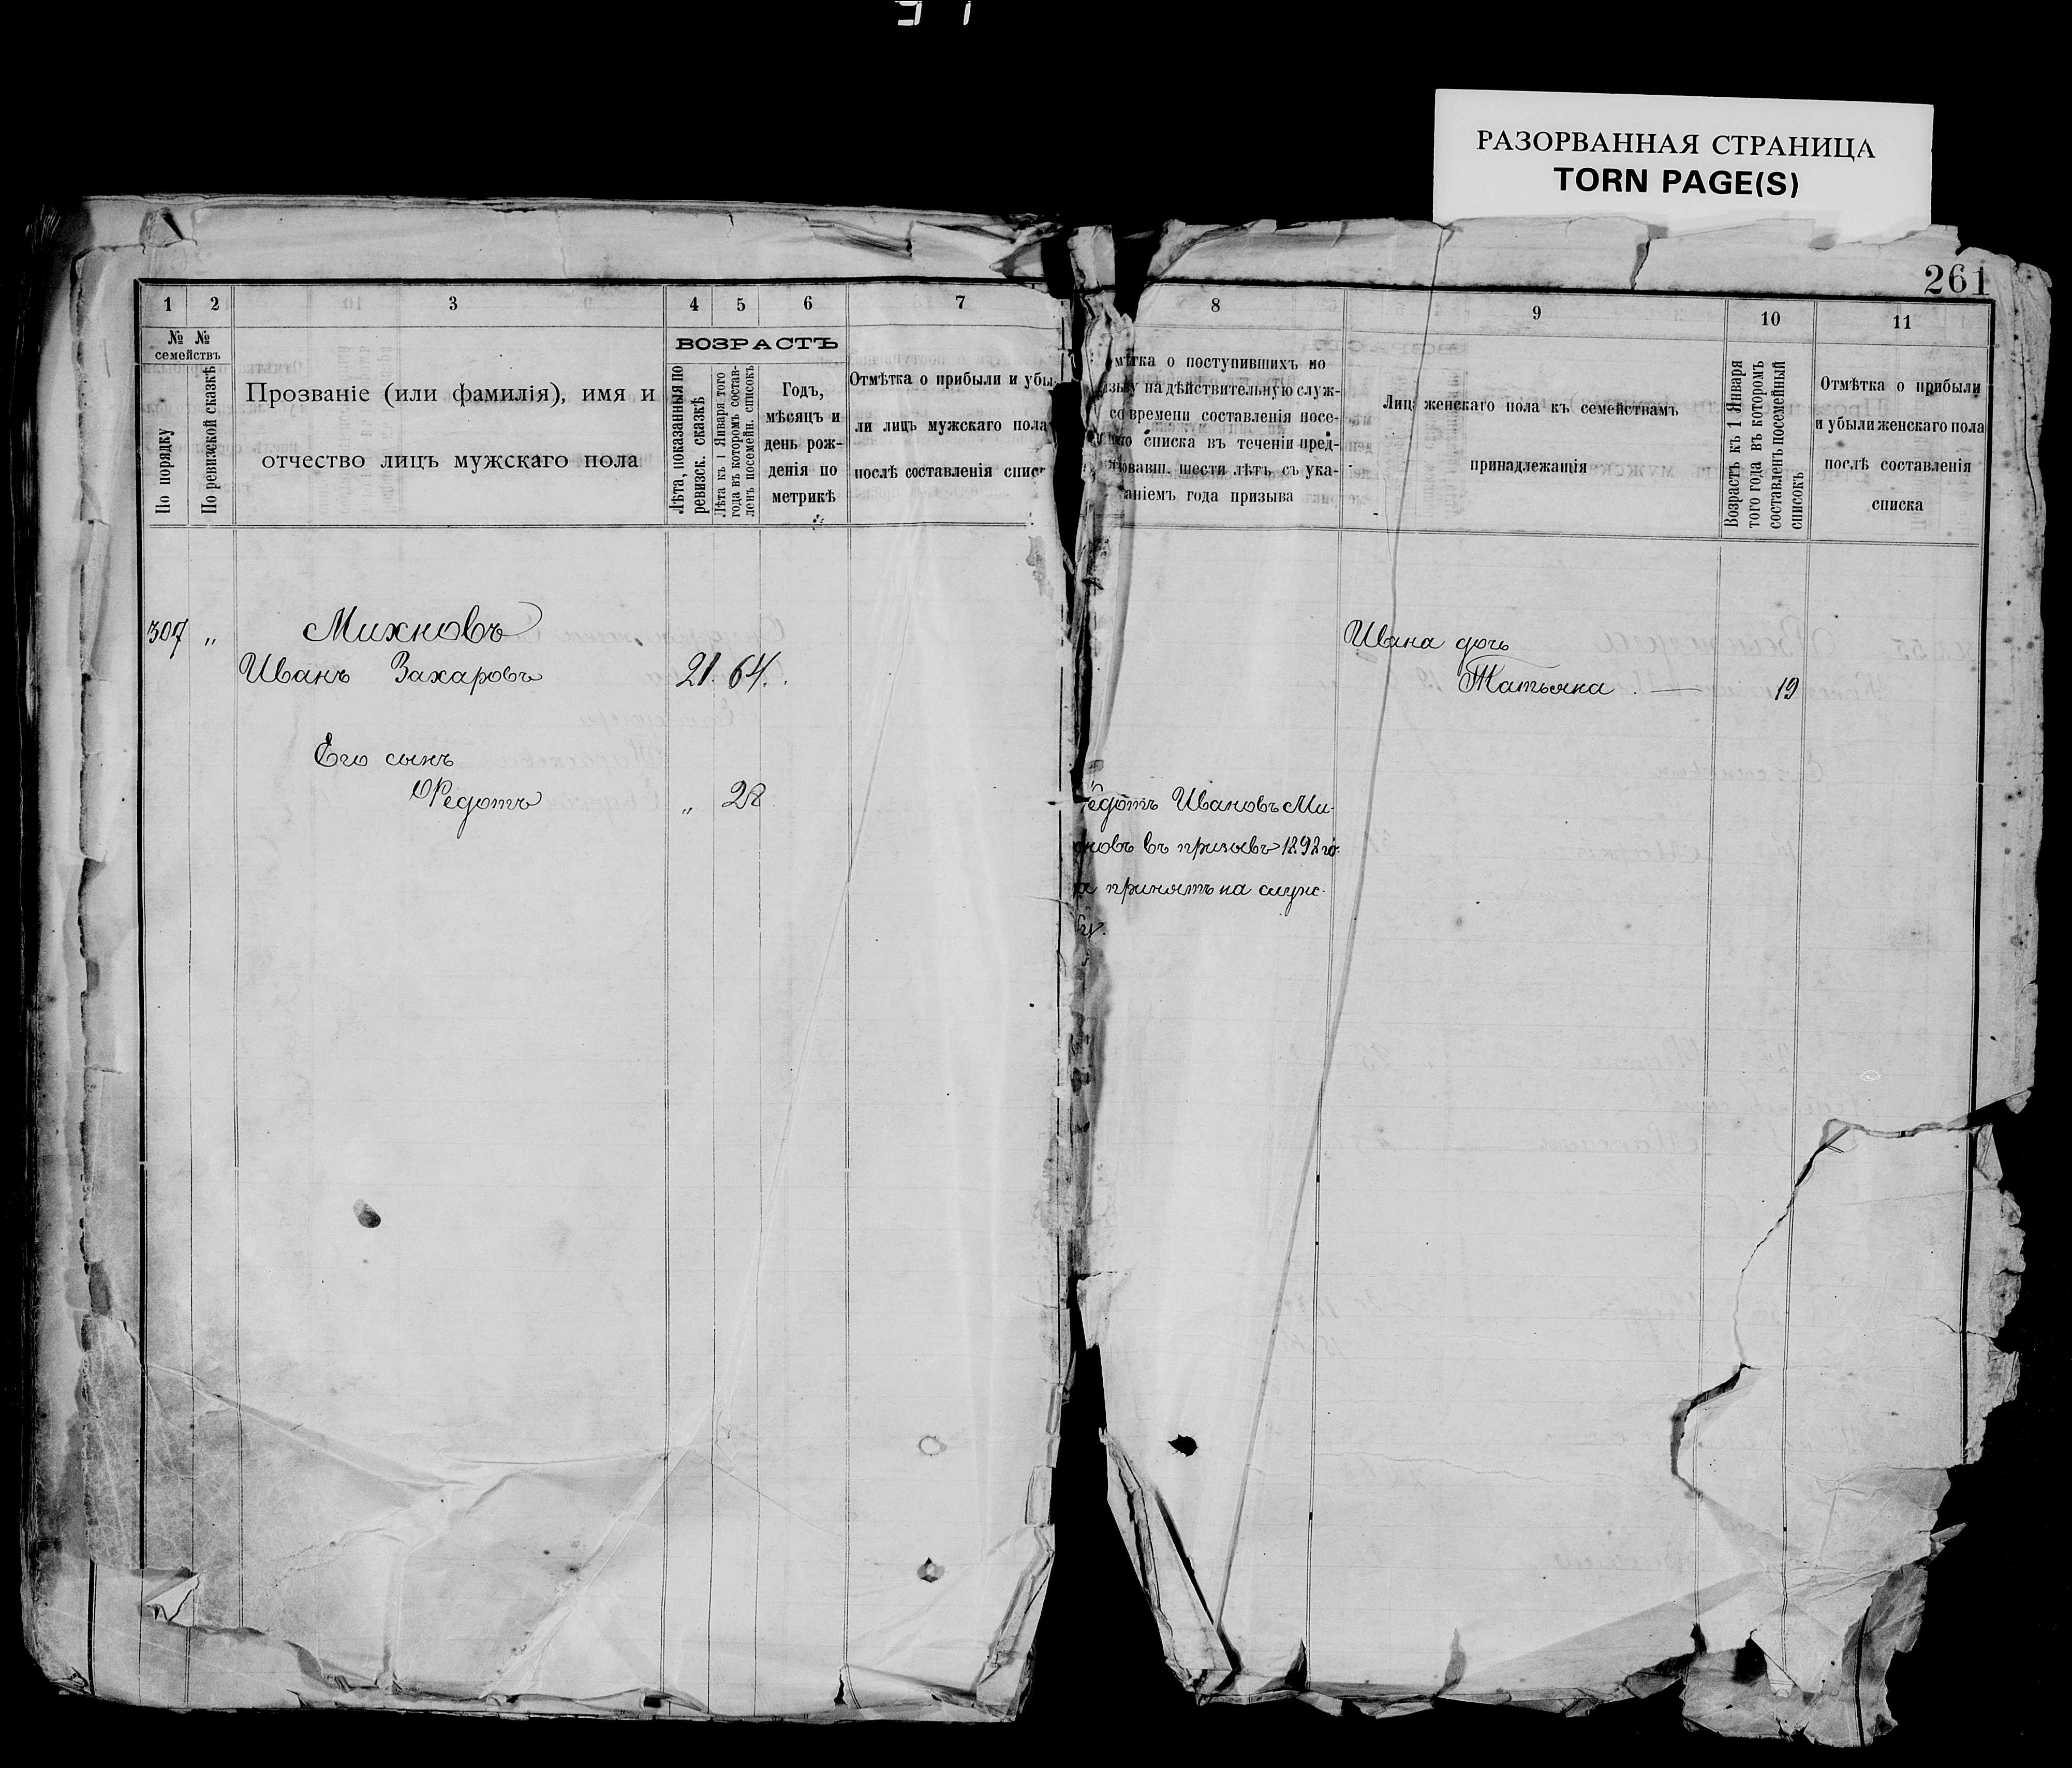 РАЗОРВАННАЯ СТРАНИЦА
TORN PAGE(S)
261
1 2 3 4 5 6 7
№ №
семействъ
По порядку
По ревизской сказкѣ
Прозваніе (или фамилія), имя и
отчество лицъ мужскаго пола
ВОЗРАСТЪ
Лѣта, показанныя по
ревизск. сказкѣ
Лѣта къ 1 Января того
года въ которомъ состав-
ленъ посемейн. списокъ
Годъ,
мѣсяцъ и
день рож-
денія по
метрикѣ
Отмѣтка о прибыли и убы
ли лицъ мужскаго пола
послѣ составленія списк
307 „ Михновъ
Иванъ Захаровъ 21. 64.
Его сынъ
Ѳедотъ „ 28
8 9 10 11
мѣтка о поступившихъ по
зыву на дѣйствительную служ-
со времени составленія посе-
списка въ теченіи пред-
овавш. шести лѣтъ, съ ука-
аніемъ года призыва
Лица женскаго пола къ семействамъ
принадлежащія
Возрастъ къ 1 Января
того года въ которомъ
составленъ посемейный
списокъ
Отмѣтка о прибыли
и убыли женскаго пола
послѣ составленія
списка
Ивана дочь
Татьяна . — 19
едотъ Ивановъ Ми-
новъ въ призывъ 1892 го-
а принятъ на служ-
бу.